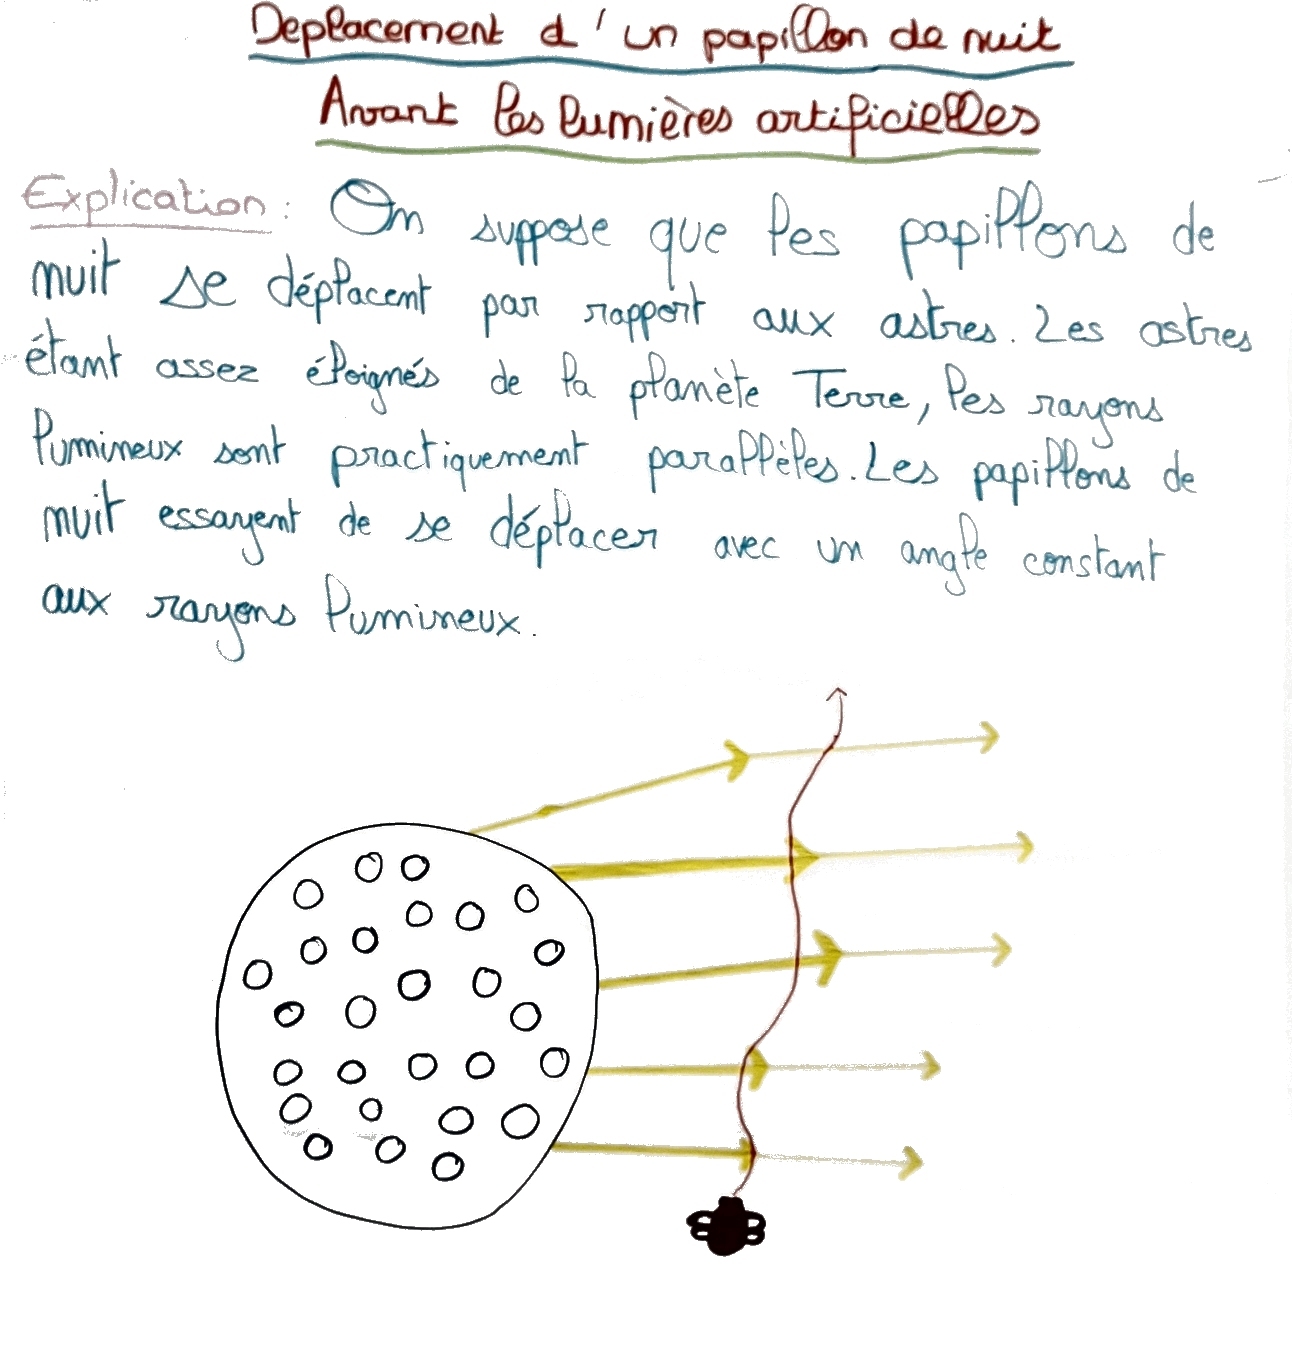 Deplacement d'un papillon de nuit
Avant les lumières artificielles
Explication : On suppose que les papillons de
nuit se déplacent par rapport aux astres. Les astres
étant assez éloignés de la planète Terre, les rayons
lumineux sont practiquement parallèles. Les papillons de
nuit essayent de se déplacer avec un angle constant
aux rayons lumineux.